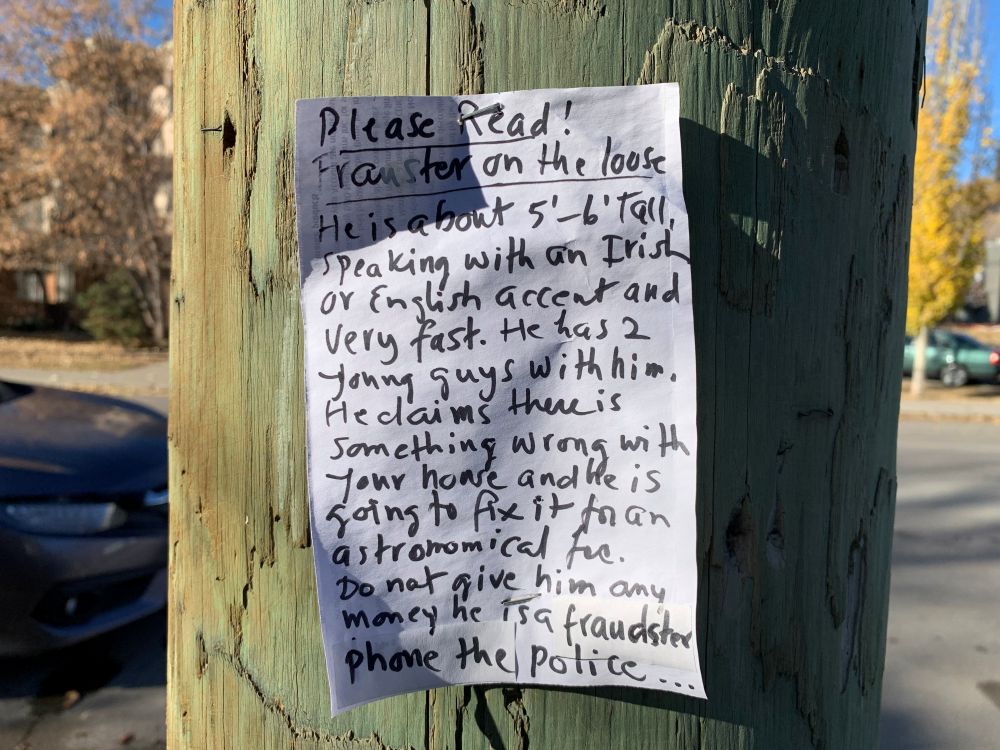 Please Read!
Frauster on the loose
He is about 5'-6' Tall,
speaking with an Irish
or English accent and
very fast. He has 2
young guys with him.
He claims there is
something wrong with
your house and he is
going to fix it for an
astronomical fee.
Do not give him any
money he is a fraudster
phone the police...